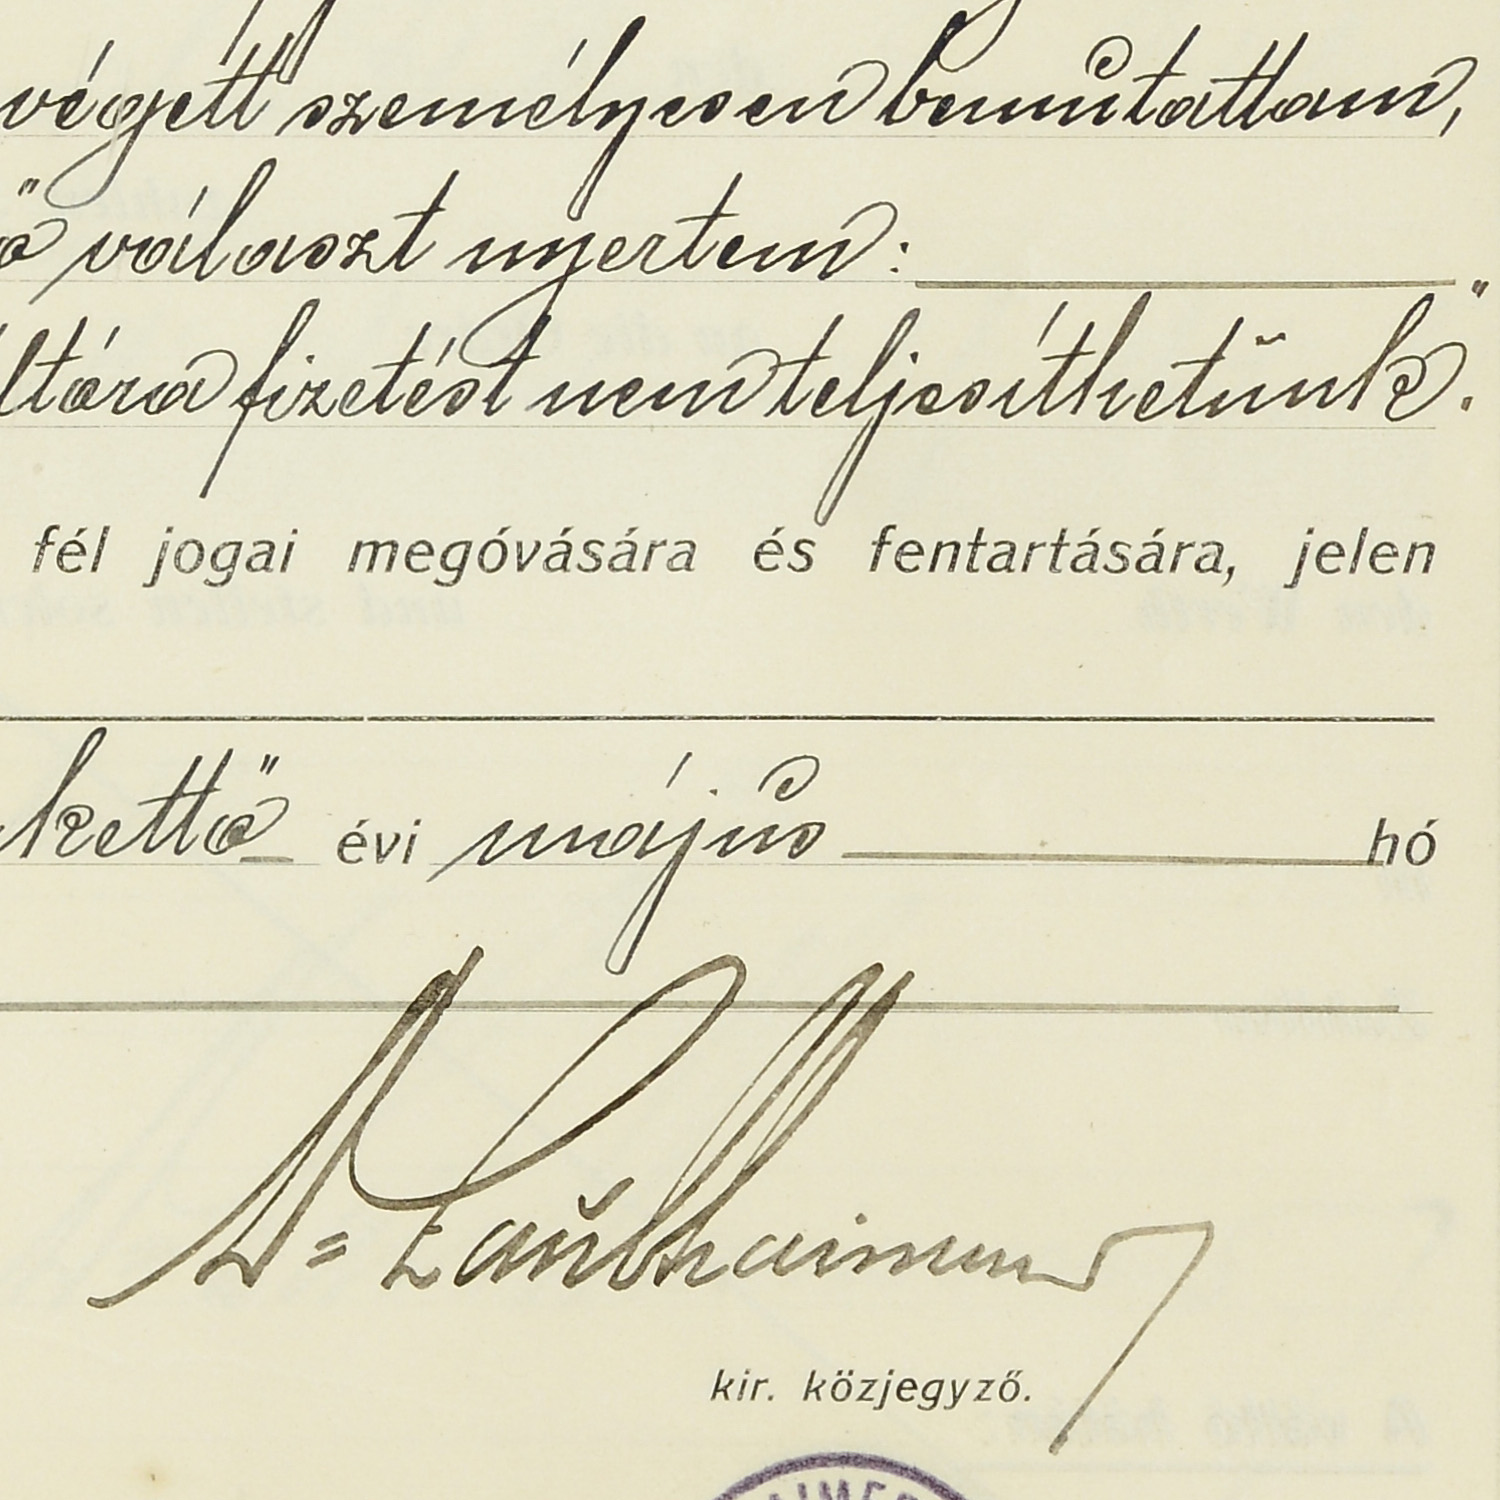 végett személyesen bemutattam,
ő választ nyertem:
ltára fizetést nem teljesíthetünk."
fél jogai megóvására és fentartására, jelen
kettő évi május hó
Dr Laubhaimer
kir. közjegyző.
AIMER